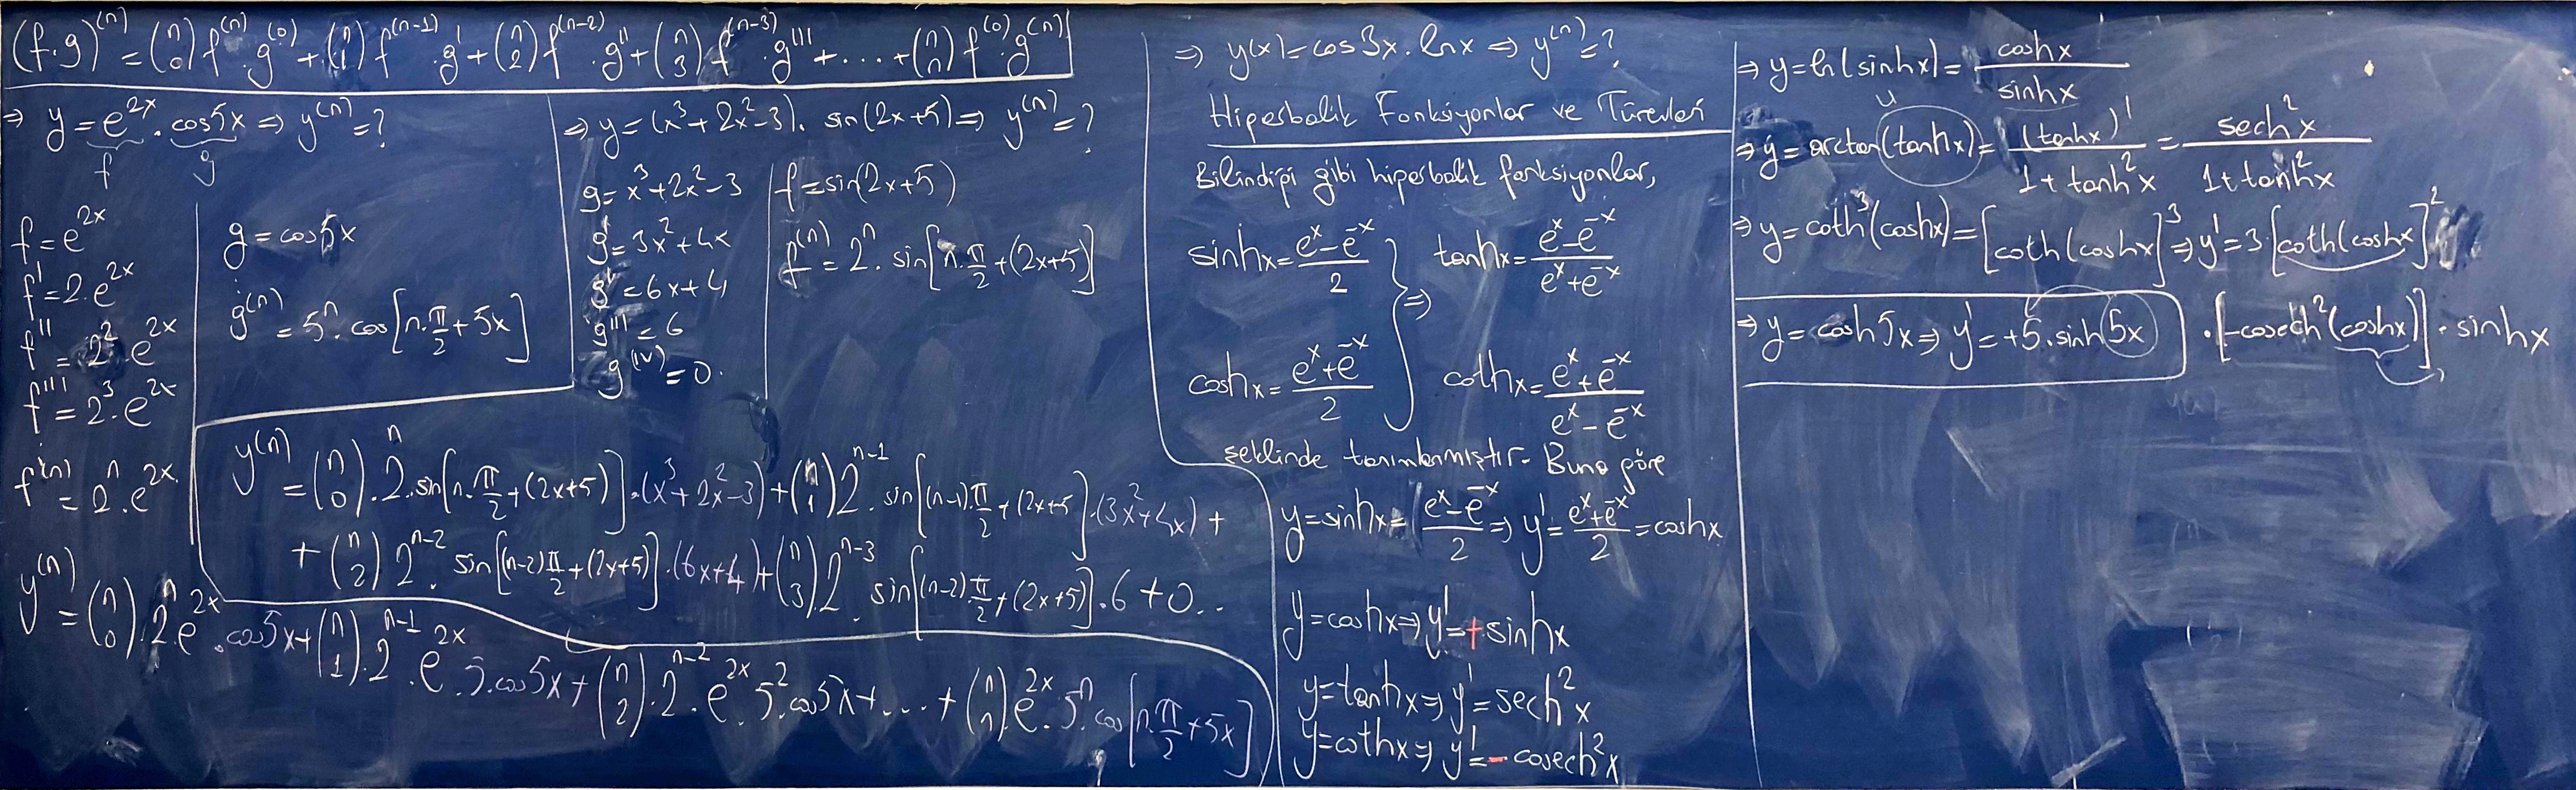 (f.g)^(n) = (n 0) f^(n).g^(0) + (n 1) f^(n-1).g' + (n 2) f^(n-2).g'' + (n 3) f^(n-3).g''' + .... + (n n) f^(0).g^(n)
⇒ y = e^2x . cos5x ⇒ y^(n) = ?
f g
f = e^2x
f' = 2.e^2x
f'' = 2^2.e^2x
f''' = 2^3.e^2x
f^(n) = 2^n.e^2x
g = cos5x
g^(n) = 5^n.cos[n.π/2 + 5x]
y^(n) = (n 0).2^n e^2x.cos5x + (n 1).2^n-1.e^2x.5.cos5x + (n 2).2^n-2.e^2x.5^2.cos5x + .... + (n n).e^2x.5^n.cos[n.π/2 + 5x]
⇒ y = (x^3 + 2x^2 - 3). sin(2x+5) ⇒ y^(n) = ?
g = x^3 + 2x^2 - 3
g' = 3x^2 + 4x
g'' = 6x + 4
g''' = 6
g^(IV) = 0.
f = sin(2x+5)
f^(n) = 2^n. sin[n.π/2 + (2x+5)]
y^(n) = (n 0).2^n.sin[n.π/2 + (2x+5)].(x^3 + 2x^2 - 3) + (n 1) 2^n-1. sin[(n-1).π/2 + (2x+5].(3x^2+4x) +
+ (n 2) 2^n-2. sin[(n-2)π/2 + (2x+5)].(6x+4) + (n 3).2^n-3. sin[(n-2).π/2 + (2x+5)].6 + 0...
⇒ y(x) = cos3x. lnx ⇒ y^(n) = ?
Hiperbolik Fonksiyonlar ve Türevleri
Bilindiği gibi hiperbolik fonksiyonlar,
sinhx = (e^x - e^-x)/2
coshx = (e^x + e^-x)/2
⇒
tanhx = (e^x - e^-x)/(e^x + e^-x)
cothx = (e^x + e^-x)/(e^x - e^-x)
şeklinde tanımlanmıştır. Buna göre
y = sinhx = (e^x - e^-x)/2 ⇒ y' = (e^x + e^-x)/2 = coshx
y = coshx ⇒ y' = + sinhx
y = tanhx ⇒ y' = sech^2x
y = cothx ⇒ y' = - cosech^2x
⇒ y = ln(sinhx) = coshx/sinhx
u
⇒ y' = arctan(tanhx) = (tanhx)'/(1 + tanh^2x) = sech^2x/(1 + tanh^2x)
⇒ y = coth^3(coshx) = [coth(coshx]^3 ⇒ y' = 3.[coth(coshx]^2
.[-cosech^2(coshx)].sinhx
⇒ y = cosh5x ⇒ y' = +5.sinh5x